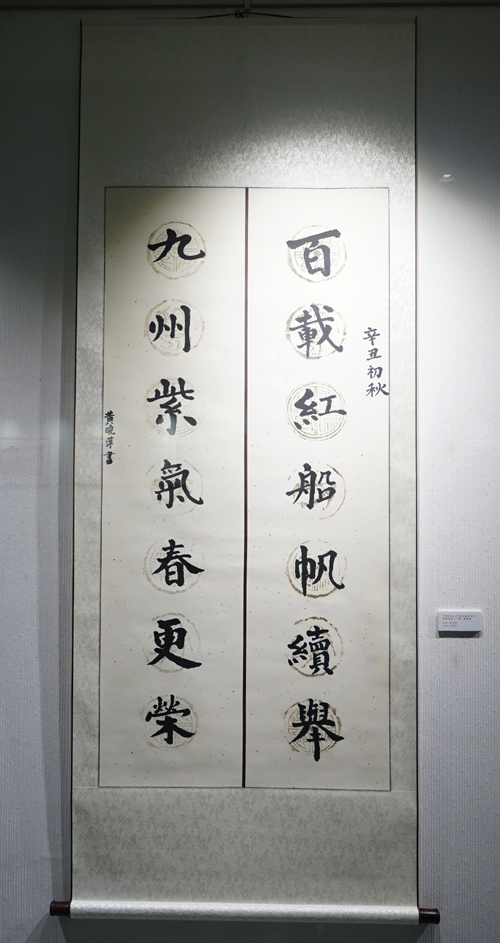 辛丑初秋
百載紅船帆續舉
九州紫氣春更榮
黄曉萍書